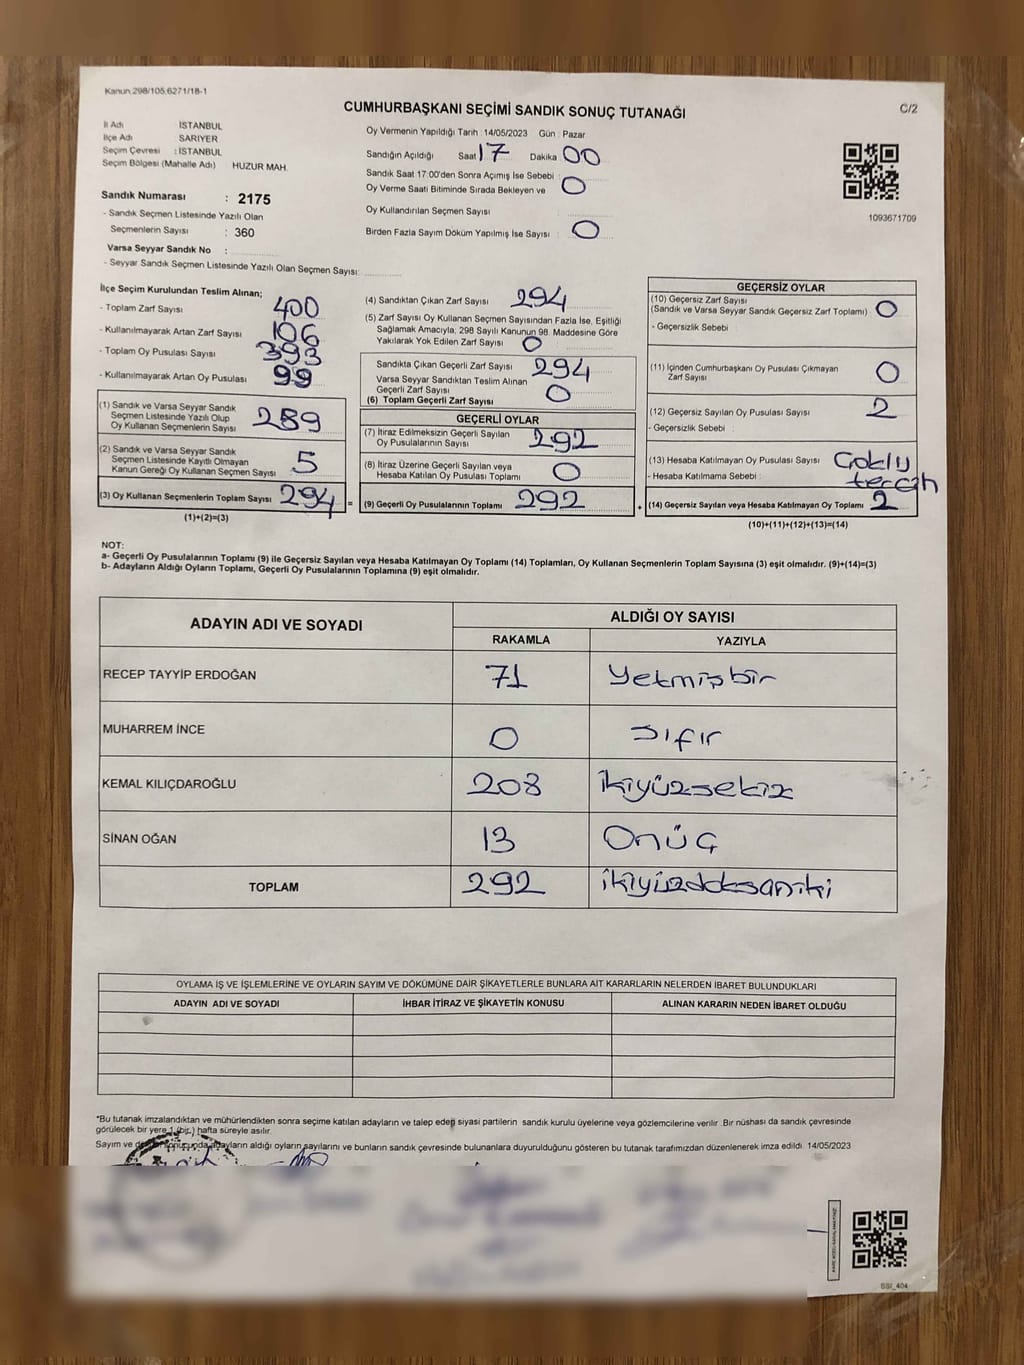 Kanun.298/105,6271/18-1
CUMHURBAŞKANI SEÇİMİ SANDIK SONUÇ TUTANAĞI
C/2
İl Adı İSTANBUL
İlçe Adı SARIYER
Seçim Çevresi : İSTANBUL
Seçim Bölgesi (Mahalle Adı) HUZUR MAH.
Sandık Numarası : 2175
- Sandık Seçmen Listesinde Yazılı Olan
Seçmenlerin Sayısı : 360
Varsa Seyyar Sandık No :
- Seyyar Sandık Seçmen Listesinde Yazılı Olan Seçmen Sayısı:
Oy Vermenin Yapıldığı Tarih : 14/05/2023 Gün : Pazar
Sandığın Açıldığı Saat 17 Dakika 00
Sandık Saat 17:00'den Sonra Açımış İse Sebebi :
Oy Verme Saati Bitiminde Sırada Bekleyen ve 0
Oy Kullandırılan Seçmen Sayısı
Birden Fazla Sayım Döküm Yapılmış İse Sayısı : 0
1093671709
İlçe Seçim Kurulundan Teslim Alınan;
- Toplam Zarf Sayısı 400
- Kullanılmayarak Artan Zarf Sayısı 106
- Toplam Oy Pusulası Sayısı 393
- Kullanılmayarak Artan Oy Pusulası 99
(1) Sandık ve Varsa Seyyar Sandık
Seçmen Listesinde Yazılı Olup
Oy Kullanan Seçmenlerin Sayısı 289
(2) Sandık ve Varsa Seyyar Sandık
Seçmen Listesinde Kayıtlı Olmayan
Kanun Gereği Oy Kullanan Seçmen Sayısı 5
(3) Oy Kullanan Seçmenlerin Toplam Sayısı 294 =
(1)+(2)=(3)
(4) Sandıktan Çıkan Zarf Sayısı 294
(5) Zarf Sayısı Oy Kullanan Seçmen Sayısından Fazla İse, Eşitliği
Sağlamak Amacıyla; 298 Sayılı Kanunun 98. Maddesine Göre
Yakılarak Yok Edilen Zarf Sayısı 0
Sandıkta Çıkan Geçerli Zarf Sayısı 294
Varsa Seyyar Sandıktan Teslim Alınan
Geçerli Zarf Sayısı 0
(6) Toplam Geçerli Zarf Sayısı
GEÇERLİ OYLAR
(7) İtiraz Edilmeksizin Geçerli Sayılan
Oy Pusulalarının Sayısı 292
(8) İtiraz Üzerine Geçerli Sayılan veya
Hesaba Katılan Oy Pusulası Toplamı 0
(9) Geçerli Oy Pusulalarının Toplamı 292
GEÇERSİZ OYLAR
(10) Geçersiz Zarf Sayısı
(Sandık ve Varsa Seyyar Sandık Geçersiz Zarf Toplamı) 0
- Geçersizlik Sebebi
(11) İçinden Cumhurbaşkanı Oy Pusulası Çıkmayan
Zarf Sayısı 0
(12) Geçersiz Sayılan Oy Pusulası Sayısı 2
- Geçersizlik Sebebi :
(13) Hesaba Katılmayan Oy Pusulası Sayısı Çoklu
- Hesaba Katılmama Sebebi : tercih
(14) Geçersiz Sayılan veya Hesaba Katılmayan Oy Toplamı 2
(10)+(11)+(12)+(13)=(14)
NOT:
a- Geçerli Oy Pusulalarının Toplamı (9) ile Geçersiz Sayılan veya Hesaba Katılmayan Oy Toplamı (14) Toplamları, Oy Kullanan Seçmenlerin Toplam Sayısına (3) eşit olmalıdır. (9)+(14)=(3)
b- Adayların Aldığı Oyların Toplamı, Geçerli Oy Pusulalarının Toplamına (9) eşit olmalıdır.
ADAYIN ADI VE SOYADI
ALDIĞI OY SAYISI
RAKAMLA YAZIYLA
RECEP TAYYİP ERDOĞAN 71 Yetmişbir
MUHARREM İNCE 0 Sıfır
KEMAL KILIÇDAROĞLU 208 İkiyüzsekiz
SİNAN OĞAN 13 Onüç
TOPLAM 292 ikiyüzdoksaniki
OYLAMA İŞ VE İŞLEMLERİNE VE OYLARIN SAYIM VE DÖKÜMÜNE DAİR ŞİKAYETLERLE BUNLARA AİT KARARLARIN NELERDEN İBARET BULUNDUKLARI
ADAYIN ADI VE SOYADI İHBAR İTİRAZ VE ŞİKAYETİN KONUSU ALINAN KARARIN NEDEN İBARET OLDUĞU
*Bu tutanak imzalandıktan ve mühürlendikten sonra seçime katılan adayların ve talep eden siyasi partilerin sandık kurulu üyelerine veya gözlemcilerine verilir. Bir nüshası da sandık çevresinde
görülecek bir yere 1 (bir) hafta süreyle asılır.
Sayım ve adayların aldığı oyların sayılarını ve bunların sandık çevresinde bulunanlara duyurulduğunu gösteren bu tutanak tarafımızdan düzenlenerek imza edildi. 14/05/2023
SSI_404